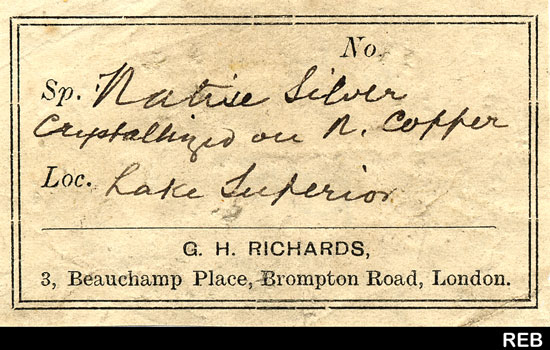 No.
Sp. Native Silver
Crystallized on N. Copper
Loc. Lake Superior
G. H. RICHARDS,
3, Beauchamp Place, Brompton Road, London.
REB